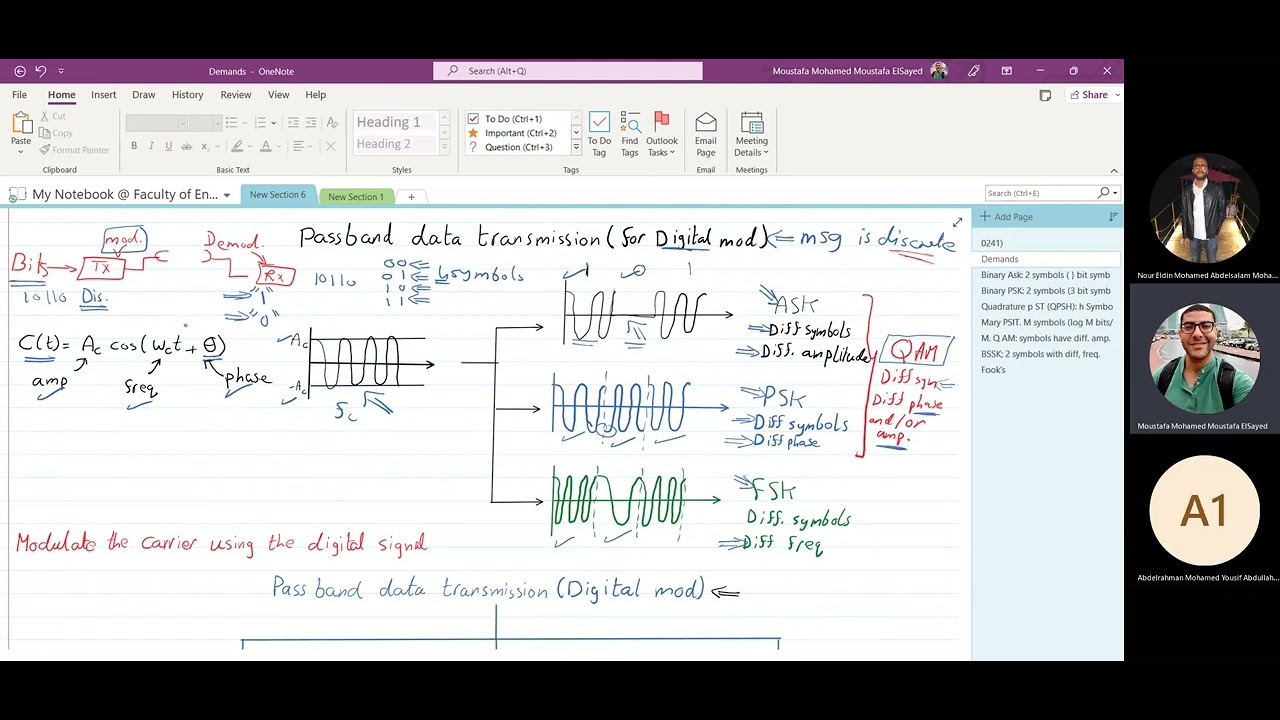 Demands - OneNote
Search (Alt+Q)
Moustafa Mohamed Moustafa ElSayed
File Home Insert Draw History Review View Help
Share
Paste
Cut
Copy
Format Painter
Clipboard
B I U ab x
Basic Text
Heading 1
Heading 2
Styles
To Do (Ctrl+1)
Important (Ctrl+2)
Question (Ctrl+3)
To Do Tag
Find Tags
Outlook Tasks
Tags
Email Page
Email
Meeting Details
Meetings
My Notebook @ Faculty of En...
New Section 6
New Section 1
+
Search (Ctrl+E)
Add Page
0241)
Demands
Binary Ask: 2 symbols ( } bit symb
Binary PSK: 2 symbols (3 bit symb
Quadrature p ST (QPSH): h Symbo
Mary PSIT. M symbols (log M bits/
M. Q AM: symbols have diff. amp.
BSSK; 2 symbols with diff, freq.
Fook's
Passband data transmission (for Digital mod) ⇐ msg is discrete
mod.
Bits → TX
Demod.
Rx
10110 Dis.
"1"
"0"
10110
00
01
10
11
4 symbols
C(t) = Ac cos(ωct + θ)
amp
freq
phase
Ac
-Ac
fc
1 0 1
ASK
Diff symbols
Diff. amplitude
PSK
Diff symbols
Diff phase
FSK
Diff. symbols
Diff freq
QAM
Diff sym
Diff phase
and/or
amp.
Modulate the carrier using the digital signal
Passband data transmission (Digital mod) ⇐
Nour Eldin Mohamed Abdelsalam Moha...
Moustafa Mohamed Moustafa ElSayed
A1
Abdelrahman Mohamed Yousif Abdullah...